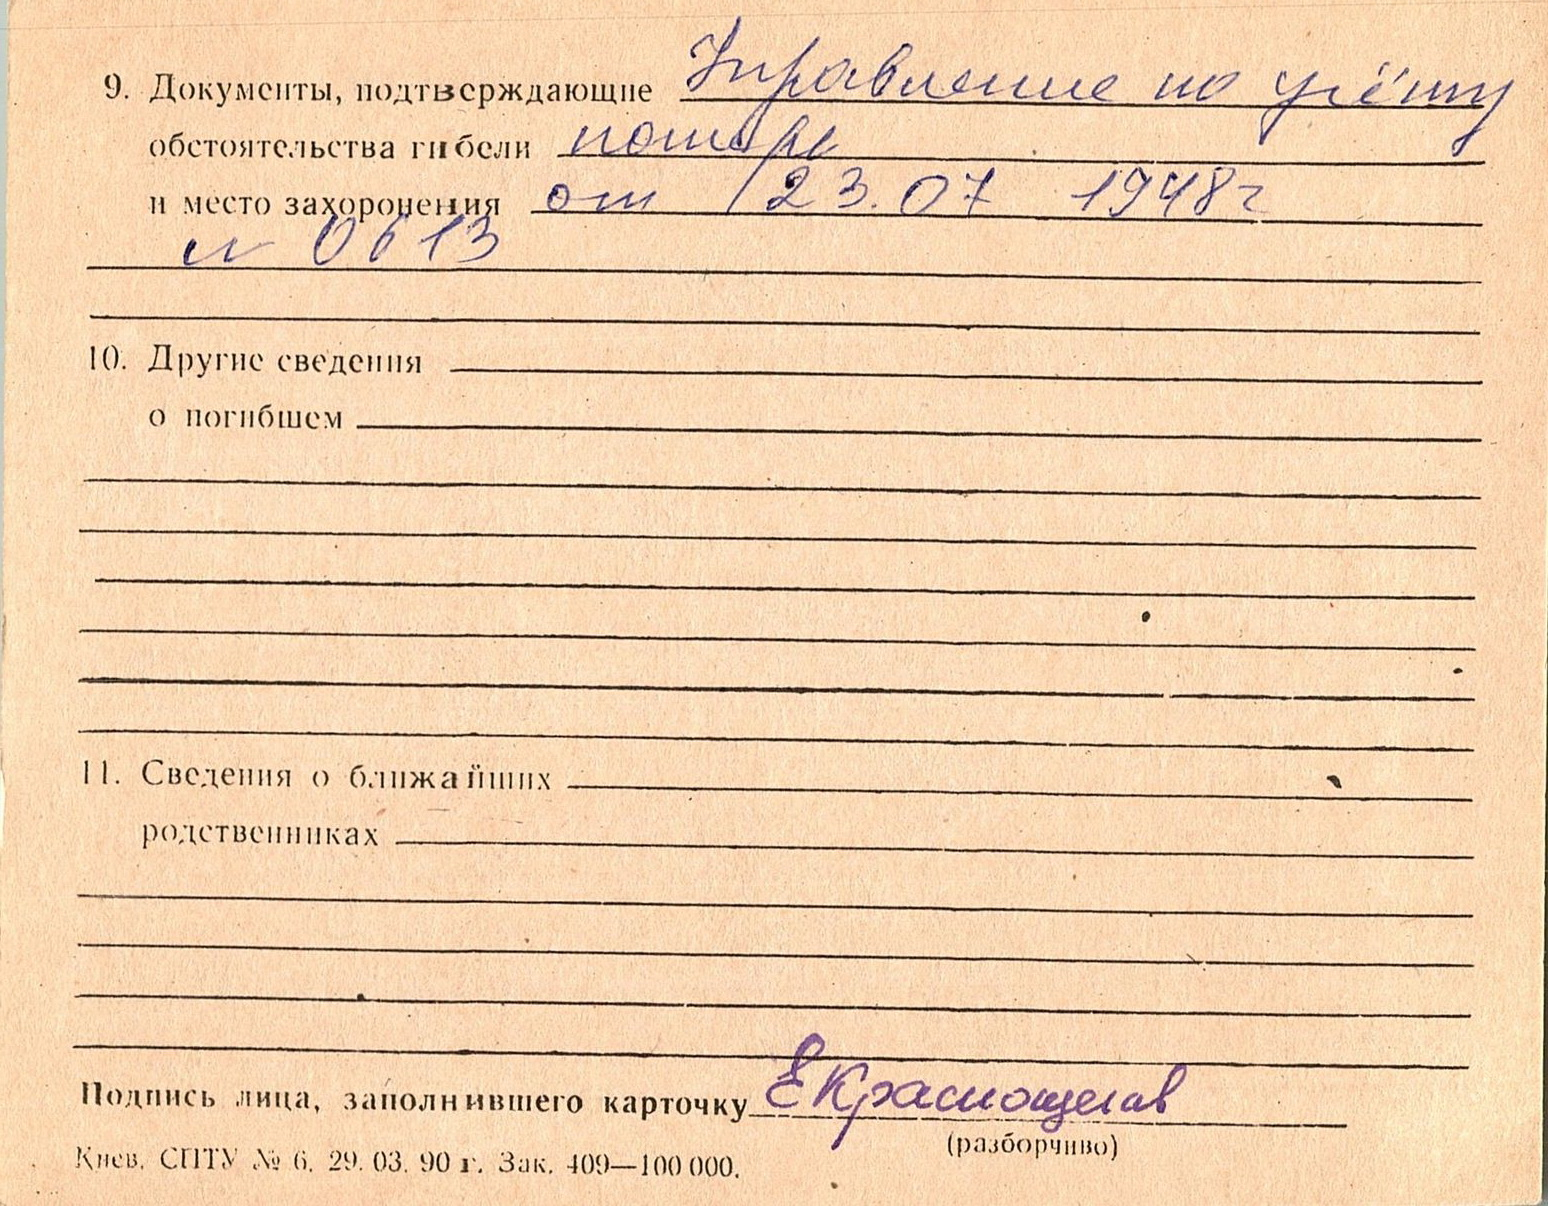 9. Документы, подтверждающие Управление по учёту
обстоятельства гибели потерь
и место захоронения от 23.07 1948г
№ 0613
10. Другие сведения
о погибшем
11. Сведения о ближайших
родственниках
Подпись лица, заполнившего карточку ЕКраснощеков
(разборчиво)
Киев. СПТУ № 6. 29. 03. 90 г. Зак. 409—100 000.